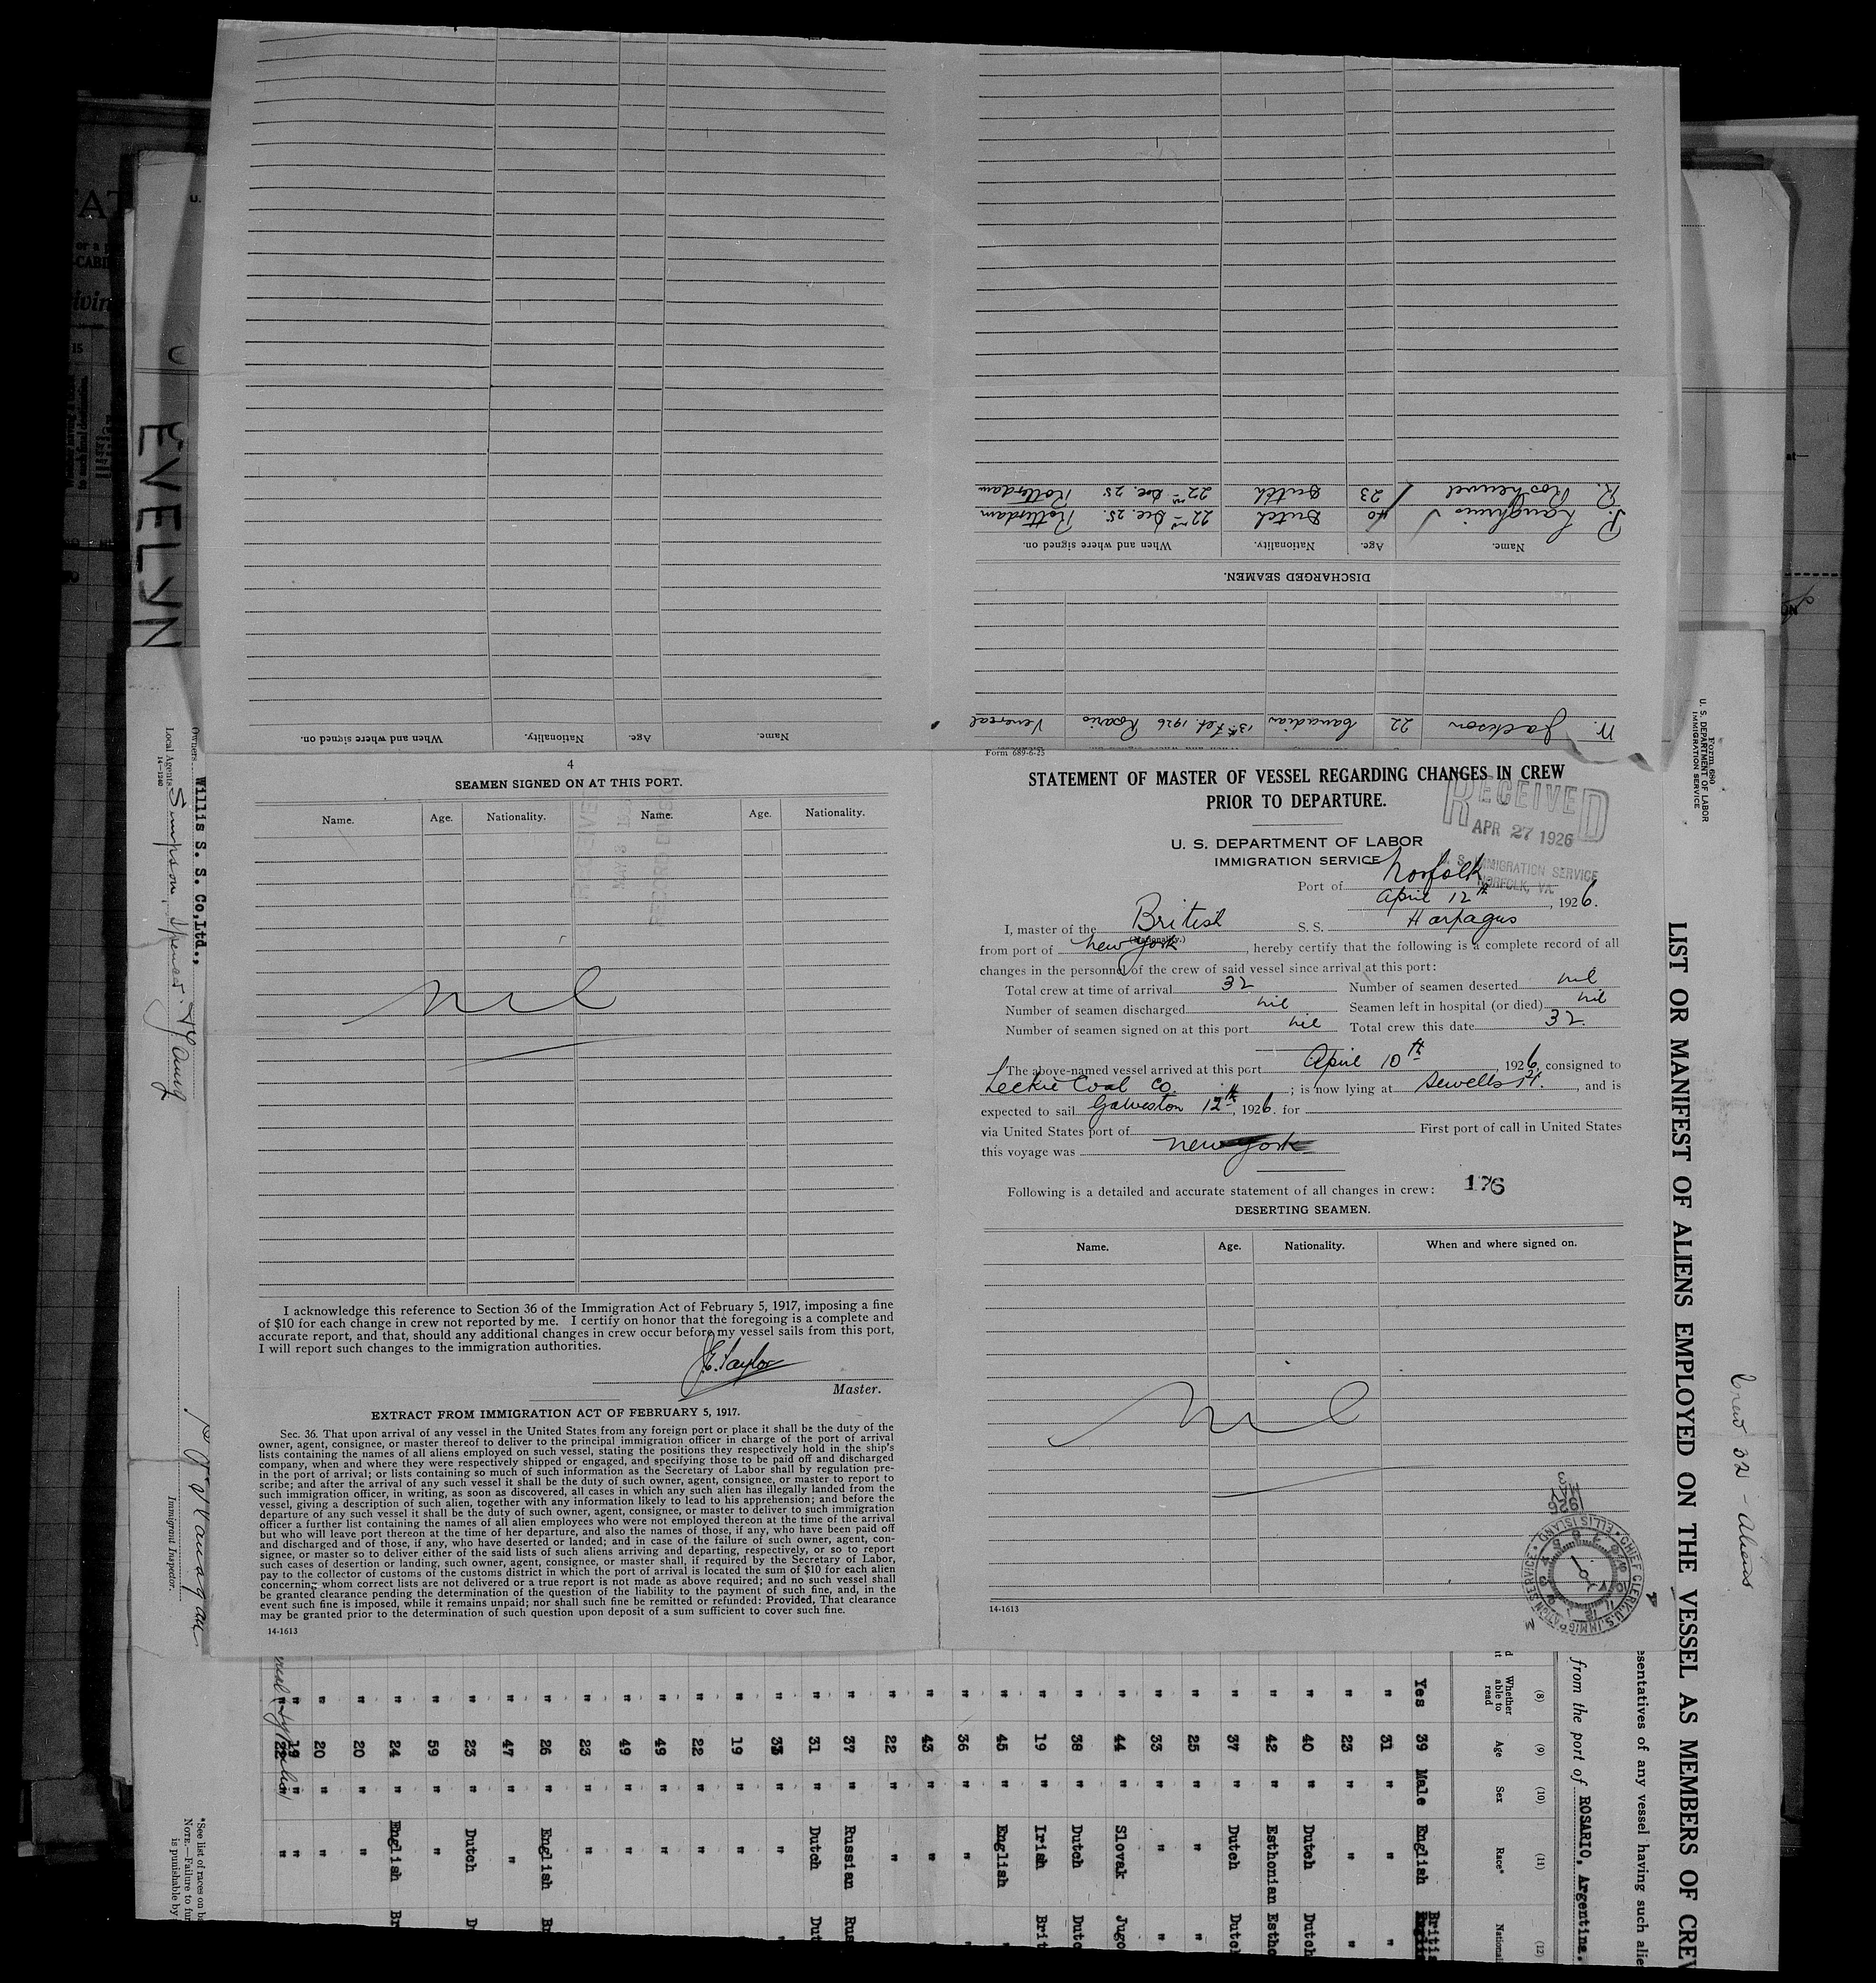 EVELYN
Name. Age. Nationality. When and where signed on.
W. Jackson 22 Canadian 13th Feb. 1926 Rosario Venereal
DISCHARGED SEAMEN.
Name. Age. Nationality. When and where signed on.
40 Dutch 22nd Dec. 25. Rotterdam
R. 23 Dutch 22nd Dec. 25 Rotterdam
4
SEAMEN SIGNED ON AT THIS PORT.
Name. Age. Nationality. Name. Age. Nationality.
nil
I acknowledge this reference to Section 36 of the Immigration Act of February 5, 1917, imposing a fine
of $10 for each change in crew not reported by me. I certify on honor that the foregoing is a complete and
accurate report, and that, should any additional changes in crew occur before my vessel sails from this port,
I will report such changes to the immigration authorities.
J.E. Taylor
Master.
EXTRACT FROM IMMIGRATION ACT OF FEBRUARY 5, 1917.
Sec. 36. That upon arrival of any vessel in the United States from any foreign port or place it shall be the duty of the
owner, agent, consignee, or master thereof to deliver to the principal immigration officer in charge of the port of arrival
lists containing the names of all aliens employed on such vessel, stating the positions they respectively hold in the ship's
company, when and where they were respectively shipped or engaged, and specifying those to be paid off and discharged
in the port of arrival; or lists containing so much of such information as the Secretary of Labor shall by regulation pre-
scribe; and after the arrival of any such vessel it shall be the duty of such owner, agent, consignee, or master to report to
such immigration officer, in writing, as soon as discovered, all cases in which any such alien has illegally landed from the
vessel, giving a description of such alien, together with any information likely to lead to his apprehension; and before the
departure of any such vessel it shall be the duty of such owner, agent, consignee, or master to deliver to such immigration
officer a further list containing the names of all alien employees who were not employed thereon at the time of the arrival
but who will leave port thereon at the time of her departure, and also the names of those, if any, who have been paid off
and discharged and of those, if any, who have deserted or landed; and in case of the failure of such owner, agent, con-
signee, or master so to deliver either of the said lists of such aliens arriving and departing, respectively, or so to report
such cases of desertion or landing, such owner, agent, consignee, or master shall, if required by the Secretary of Labor,
pay to the collector of customs of the customs district in which the port of arrival is located the sum of $10 for each alien
concerning whom correct lists are not delivered or a true report is not made as above required; and no such vessel shall
be granted clearance pending the determination of the question of the liability to the payment of such fine, and, in the
event such fine is imposed, while it remains unpaid; nor shall such fine be remitted or refunded: Provided, That clearance
may be granted prior to the determination of such question upon deposit of a sum sufficient to cover such fine.
14-1613
Form 689-6-25
STATEMENT OF MASTER OF VESSEL REGARDING CHANGES IN CREW
PRIOR TO DEPARTURE.
RECEIVED
APR 27 1926
U. S. IMMIGRATION SERVICE
NORFOLK, VA.
U. S. DEPARTMENT OF LABOR
IMMIGRATION SERVICE
Port of Norfolk
April 12th, 1926.
I, master of the British S. S. Harpagus
(Nationality.)
from port of New York, hereby certify that the following is a complete record of all
changes in the personnel of the crew of said vessel since arrival at this port:
Total crew at time of arrival 32 Number of seamen deserted nil
Number of seamen discharged nil Seamen left in hospital (or died) nil
Number of seamen signed on at this port nil Total crew this date 32.
The above-named vessel arrived at this port April 10th, 1926, consigned to
Leckie Coal Co.; is now lying at Sewells Pt., and is
expected to sail Galveston 12th, 1926. for
via United States port of First port of call in United States
this voyage was New York
Following is a detailed and accurate statement of all changes in crew: 176
DESERTING SEAMEN.
Name. Age. Nationality. When and where signed on.
nil
14-1613
CHIEF CLERK, U.S. IMMIGRATION SERVICE ELLIS ISLAND
Owners Willis S. S. Co,Ltd.,
Local Agents Simpson, Spence & Young
14-1240
Immigrant Inspector.
*See list of races on b
NOTE.—Failure to fur
is punishable by
Form 680
U. S. DEPARTMENT OF LABOR
IMMIGRATION SERVICE
LIST OR MANIFEST OF ALIENS EMPLOYED ON THE VESSEL AS MEMBERS OF CREW
Crew 32 - Aliens
esentatives of any vessel having such alie
from the port of ROSARIO, Argentina.
(8) (9) (10) (11) (12)
Whether able to read Age Sex Race* National
Yes 39 Male English Britis
" 31 " " "
" 23 " " "
" 40 " Dutch Dutch
" 42 " Esthonian Estho
" 37 " Dutch Dutch
" 25 " " "
" 33 " " "
" 44 " Slovak Jugo
" 38 " Dutch Dutc
" 19 " Irish Brit
" 45 " English "
" 36 " " "
" 43 " " "
" 22 " "
" 37 " Russian Rus
" 31 " Dutch Dut
" 33 " " "
" 19 " "
" 22 " "
" 49 " "
" 49 " "
" 23 " "
" 26 " English Br
" 47 " "
" 23 " Dutch D
" 59 " "
" 24 " English Br
" 20 " "
" 20 " "
" 19 " "
" 22 " "